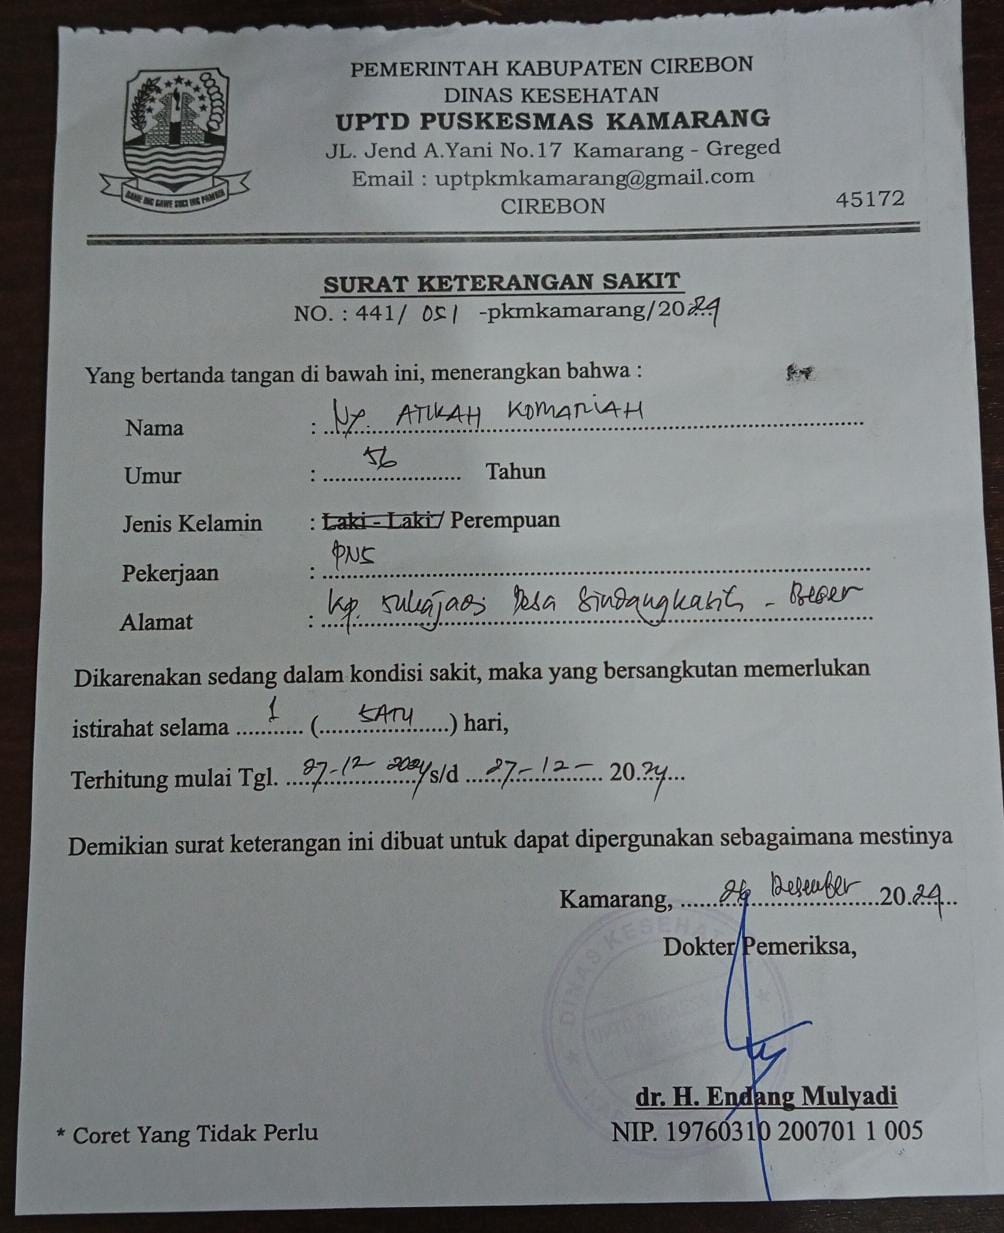 PEMERINTAH KABUPATEN CIREBON
DINAS KESEHATAN
UPTD PUSKESMAS KAMARANG
JL. Jend A.Yani No.17 Kamarang - Greged
Email : uptpkmkamarang@gmail.com
CIREBON 45172
GAWE ING
SURAT KETERANGAN SAKIT
NO. : 441/ 051 -pkmkamarang/2024
Yang bertanda tangan di bawah ini, menerangkan bahwa :
Nama : Ny. ATIKAH KOMARIAH
Umur : 56 Tahun
Jenis Kelamin : Laki - Laki / Perempuan
Pekerjaan : PNS
Alamat : Kp. Sukajadi Desa Sindangkasih - Beber
Dikarenakan sedang dalam kondisi sakit, maka yang bersangkutan memerlukan
istirahat selama 1 (SATU) hari,
Terhitung mulai Tgl. 27-12-2024 s/d 27-12- 2024
Demikian surat keterangan ini dibuat untuk dapat dipergunakan sebagaimana mestinya
Kamarang, 26 Desember 2024
Dokter Pemeriksa,
DINAS KESEHATAN
UPTD PUSKESMAS
dr. H. Endang Mulyadi
NIP. 19760310 200701 1 005
* Coret Yang Tidak Perlu